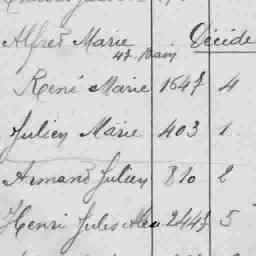 Alfred Marie Décidé
René Marie 1647 4
Julien Marie 403 1
Armand Julien 810 2
Henri Jules 2447 5